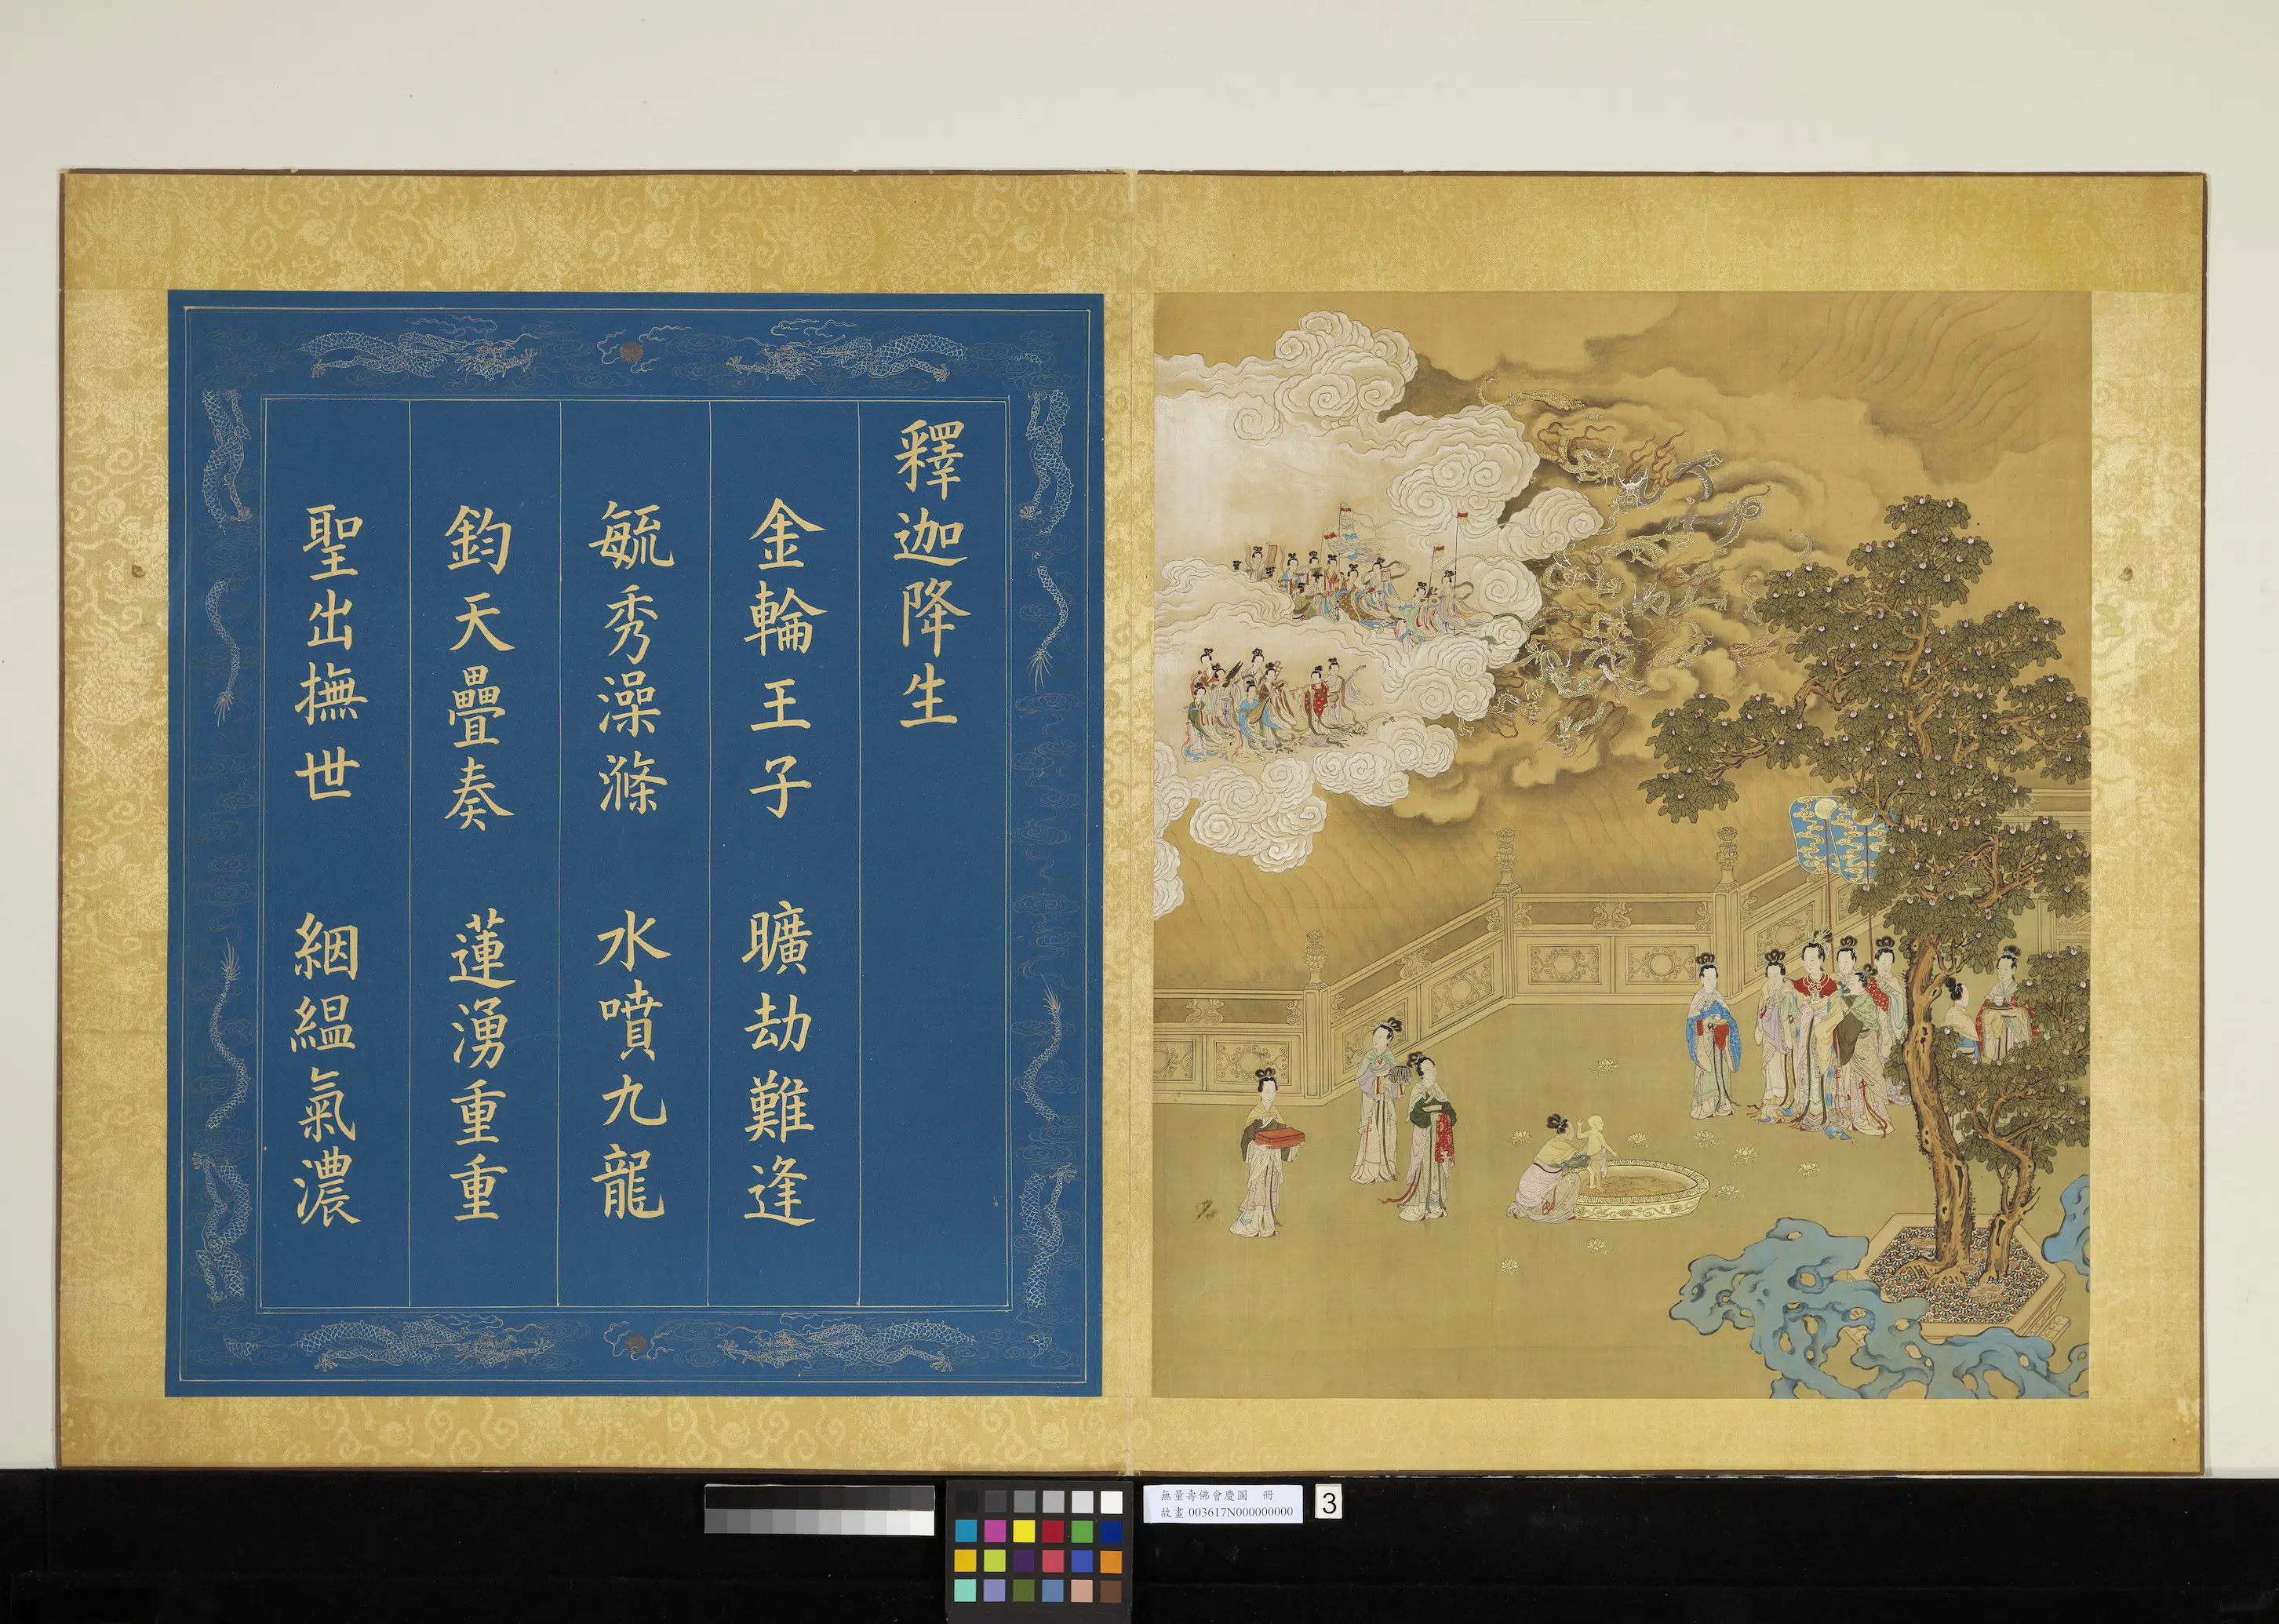 釋迦降生
金輪王子 曠劫難逢
毓秀澡滌 水噴九龍
鈞天疊奏 蓮湧重重
聖出撫世 絪縕氣濃
無量壽佛會慶圖 冊
故畫 003617N000000000
3